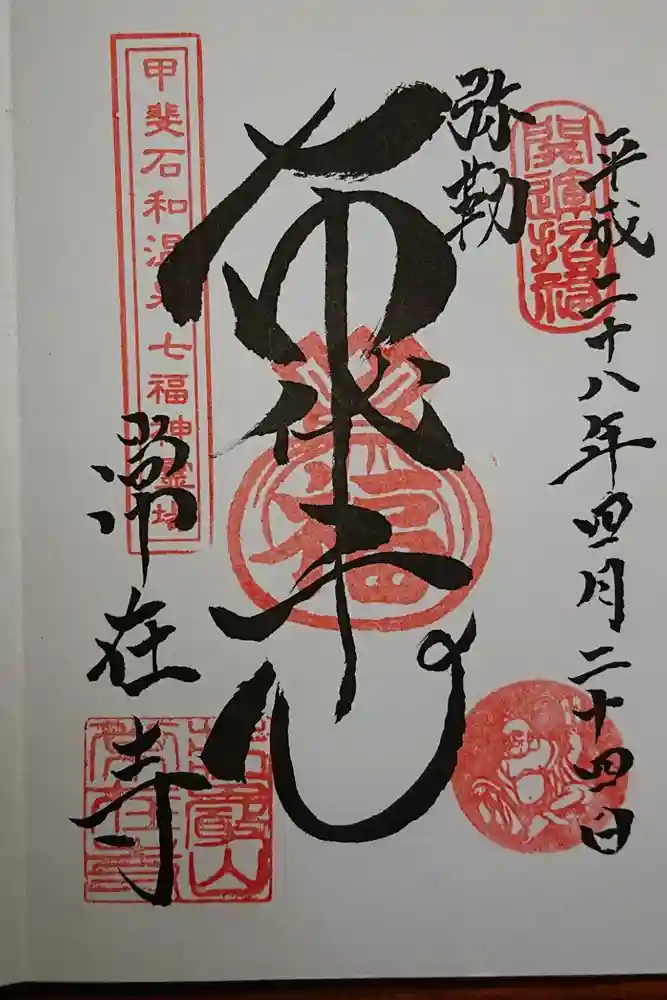 平成二十八年四月二十四日
開運招福
弥勒
布袋
福
甲斐石和温泉七福神霊場
常在寺